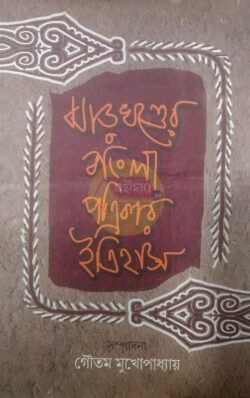 ঝাড়খণ্ডের
বাংলা
পত্রিকার
ইতিহাস
সম্পাদনা
গৌতম মুখোপাধ্যায়